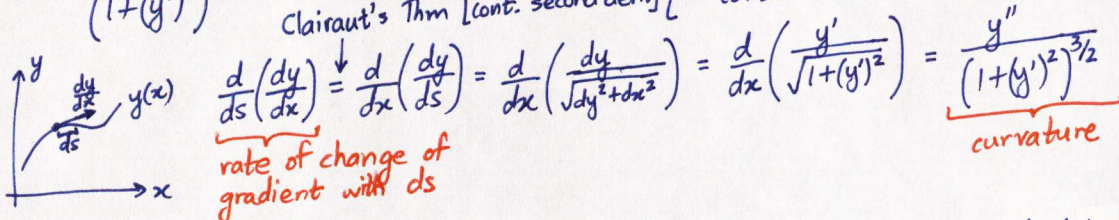 (1+(y')
Clairaut's Thm [cont.
y
dy/dx
y(x)
ds
x
d/ds (dy/dx) = d/dx (dy/ds) = d/dx (dy/√dy²+dx²) = d/dx (y'/√1+(y')²) = y''/(1+(y')²)^3/2
rate of change of
gradient with ds
curvature